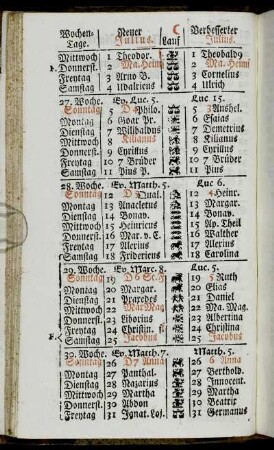 Wochen- Neuer C Verbesserter
Tage. Julius. Lauf Julius.
Mittwoch 1 Theodor. 1 Theobald
Donnerst. 2 Ma. Heims 2 Ma. Heims
Freytag 3 Arno B. 3 Cornelius
Samstag 4 Udalricus 4 Ulrich
27. Woche. Ev. Luc. 5. Luc. 15.
Sonntag 5 Philo. 5 3 Anshel.
Montag 6 Goar Pr. 6 Esaias
Dienstag 7 Willibaldus 7 Demetrius
Mittwoch 8 Kilianus 8 Kilianus
Donnerst. 9 Cyrillus 9 Cyrillus
Freytag 10 7 Brüder 10 7 Brüder
Samstag 11 Pius P. 11 Pius
28. Woche. Ev. Matth. 5. Luc 6.
Sonntag 12 Gual. 12 4 Heinr.
Montag 13 Anacletus 13 Margar.
Dienstag 14 Bonav. 14 Bonav.
Mittwoch 15 Heinricus 15 Ap. Theil
Donnerst. 16 Mar. v. C. 16 Walther
Freytag 17 Alexius 17 Alexius
Samstag 18 Fridericus 18 Carolina
29. Woche. Ev. Marc. 8. Luc. 5.
Sonntag 19 19 5 Ruth
Montag 20 Margar. 20 Elias
Dienstag 21 Praxedes 21 Daniel
Mittwoch 22 Mar Mag 22 Ma. Mag.
Donnerst. 23 Liborius 23 Albertina
Freytag 24 Christin. 24 Christina
Samstag 25 Jacobus 25 Jacobus
30. Woche. Ev. Matth. 7. Matth. 5.
Sonntag 26 D 7 Anna 26 6 Anna
Montag 27 Panthal. 27 Berthold.
Dienstag 28 Nazarius 28 Innocent.
Mittwoch 29 Martha 29 Martha
Donnerst. 30 Abdon 30 Beatrix
Freytag 31 Ignat. Loj. 31 Germanus